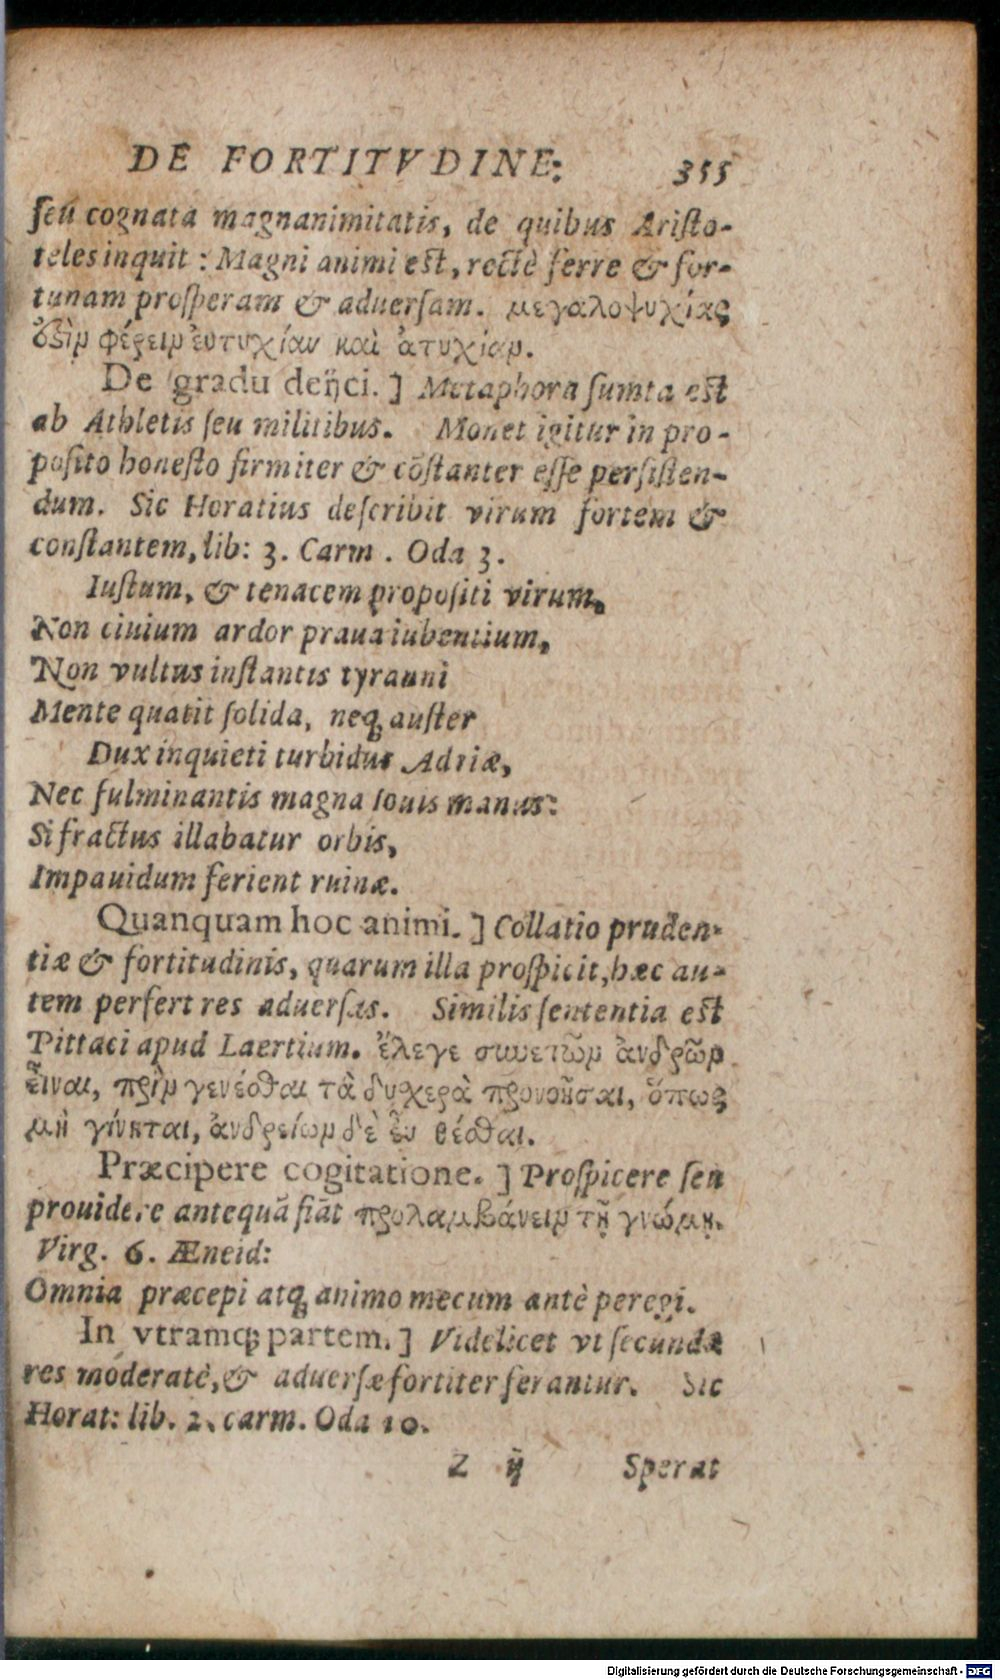 DE FORTITVDINE: 355
ſeu cognata magnanimitatis, de quibus Ariſto-
teles inquit : Magni animi eſt, rectè ferre & for-
tunam proſperam & aduerſam. μεγαλοψυχίας
ὀρθῶν φέρειν εὐτυχίαν καὶ ἀτυχίαν.
De gradu deijci. ] Metaphora ſumta eſt
ab Athletis ſeu militibus. Monet igitur in pro-
poſito honeſto firmiter & cõſtanter eſſe perſiſten-
dum. Sic Horatius deſcribit virum fortem &
conſtantem, lib: 3. Carm. Oda 3.
Iuſtum, & tenacem propoſiti virum,
Non ciuium ardor praua iubentium,
Non vultus inſtantis tyranni
Mente quatit ſolida, neq; auſter
Dux inquieti turbidus Adriæ,
Nec fulminantis magna Iouis manus:
Si fractus illabatur orbis,
Impauidum ferient ruinæ.
Quanquam hoc animi. ] Collatio pruden-
tiæ & fortitudinis, quarum illa proſpicit, hæc au-
tem perfert res aduerſas. Similis ſententia eſt
Pittaci apud Laertium. ἔλεγε συνετῶν ἀνδρῶν
εἶναι, πρὶν γενέσθαι τὰ δυχερὰ προνοῆσαι, ὅπως
μὴ γίνηται, ἀνδρείων δὲ εὖ θέσθαι.
Præcipere cogitatione. ] Proſpicere ſeu
prouidere antequã fiãt προλαμβάνειν τῇ γνώμῃ.
Virg. 6. Æneid:
Omnia præcepi atq; animo mecum antè peregi.
In vtramq; partem. ] Videlicet vt ſecundæ
res moderatè, & aduerſæ fortiter ferantur. Sic
Horat: lib. 2. carm. Oda 10.
Z ij Sperat
Digitalisierung gefördert durch die Deutsche Forschungsgemeinschaft - DFG